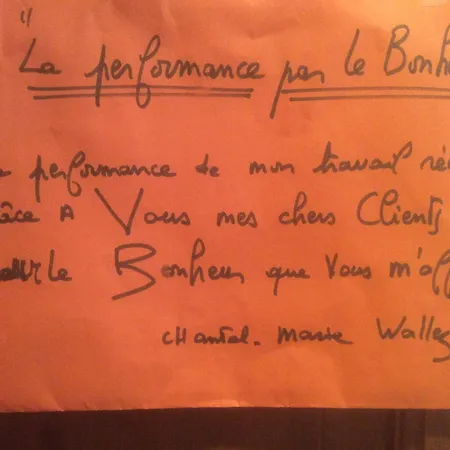 "La performance par le Bonh
performance de mon travail ré
âce A Vous mes chers Clients
le Bonheur que Vous m'of
CHantal. Marie Walle